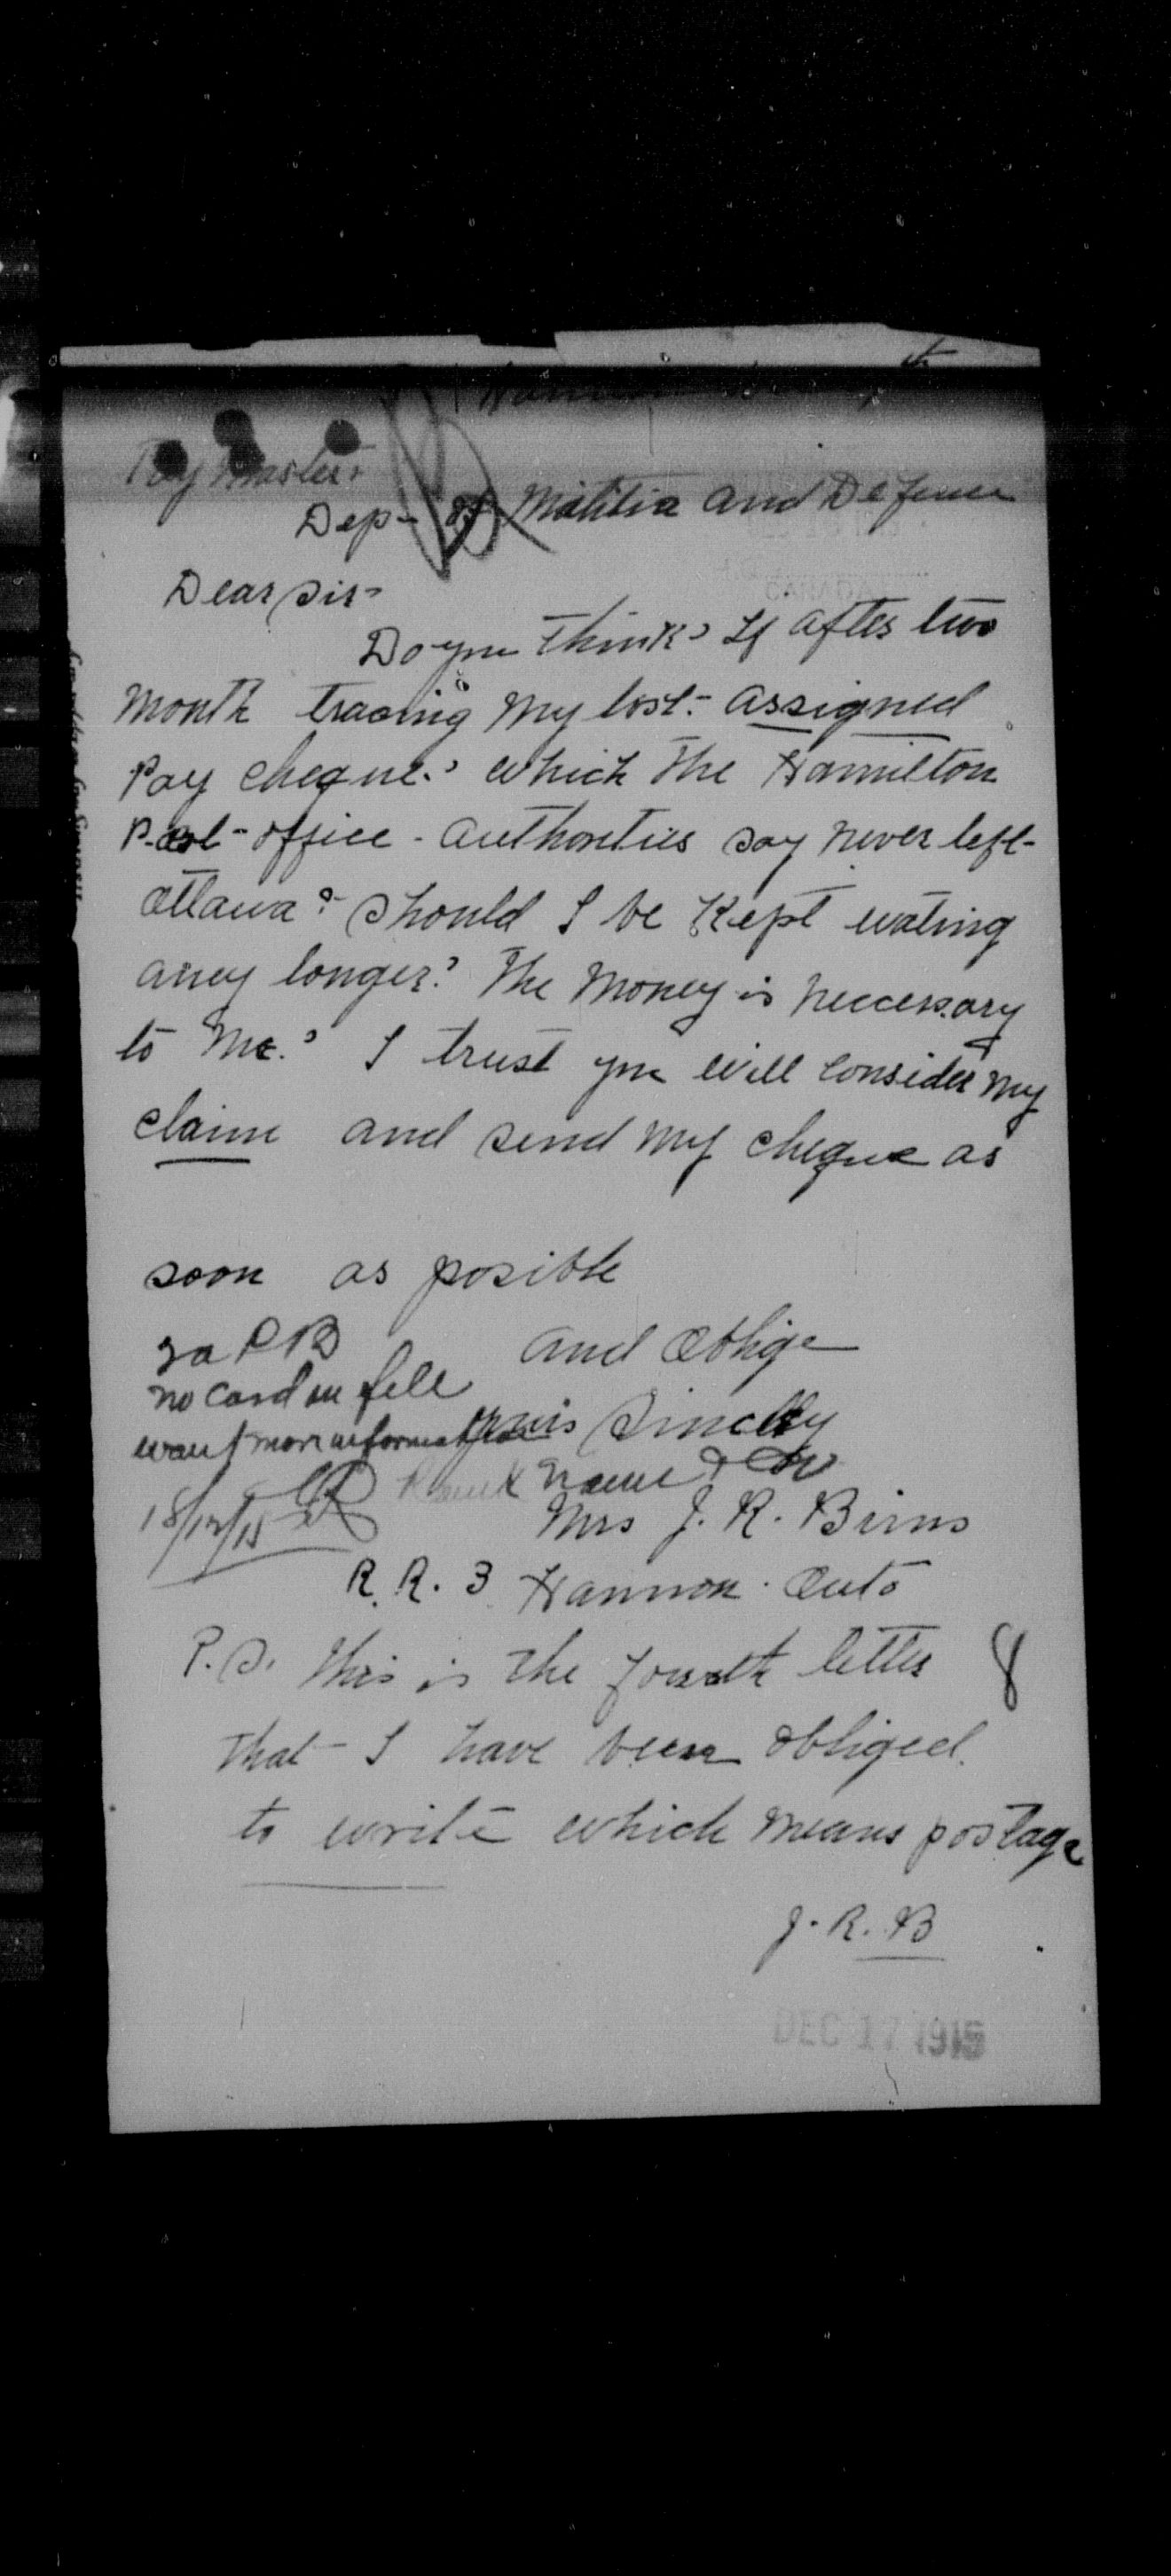 Pay Master
Dep- of Militia and Defence
CANADA
Dear Sir-
Do you think? If after two
month tracing my lost- assigned
Pay cheque? which the Hamilton
Post-office - authorities say never left-
Ottawa? Should I be Kept wating
aney longer? The money is neccessary
to me.? I trust you will consider my
claim and send my cheque as
soon as posible
and oblige
no card on file
want more information
yours Sincely
Rank name &
18/12/15
Mrs J. R. Birns
R. R. 3 Hannon. Onto
P.S. this is the fourth letter
8
that- I have been obliged
to write which means postage
J. R. B
DEC 17 1915